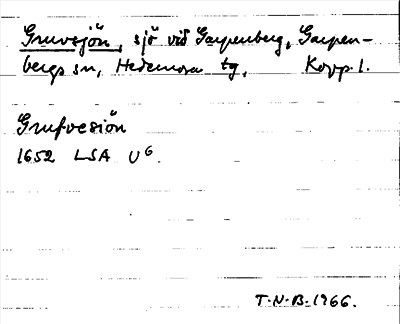 Gruvsjön, sjö vid Garpenberg, Garpen-
bergs sn, Hedemora tg, Kopp. l.
Grufvesiön
1652 LSA U6.
T.N.B. 1966.